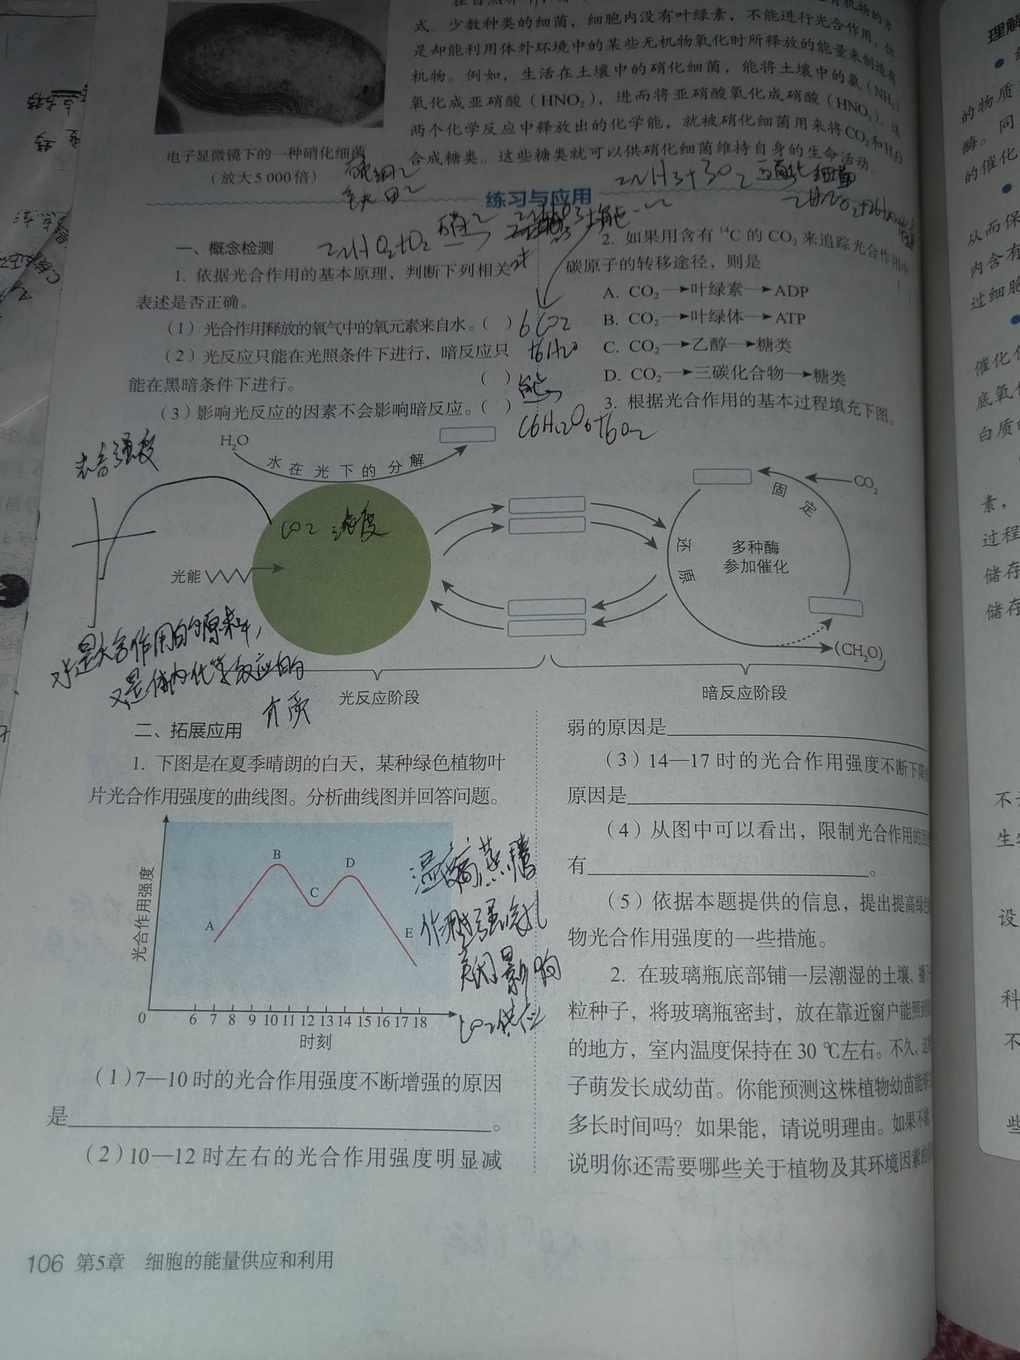 式。少数种类的细菌，细胞内没有叶绿素，不能进行光合作用，但
是却能利用体外环境中的某些无机物氧化时所释放的能量来制造有
机物。例如，生活在土壤中的硝化细菌，能将土壤中的氨（NH₃）
氧化成亚硝酸（HNO₂），进而将亚硝酸氧化成硝酸（HNO₃）。这
两个化学反应中释放出的化学能，就被硝化细菌用来将CO₂和H₂O
合成糖类。这些糖类就可以供硝化细菌维持自身的生命活动。
电子显微镜下的一种硝化细菌
（放大5 000倍）
练习与应用
一、概念检测
1. 依据光合作用的基本原理，判断下列相关
表述是否正确。
（1）光合作用释放的氧气中的氧元素来自水。（ ）
（2）光反应只能在光照条件下进行，暗反应只
能在黑暗条件下进行。（ ）
（3）影响光反应的因素不会影响暗反应。（ ）
6CO₂
+6H₂O
能
C6H12O6+6O₂
2. 如果用含有¹⁴C的CO₂来追踪光合作用中
碳原子的转移途径，则是
A. CO₂→叶绿素→ADP
B. CO₂→叶绿体→ATP
C. CO₂→乙醇→糖类
D. CO₂→三碳化合物→糖类
3. 根据光合作用的基本过程填充下图。
H₂O
水在光下的分解
CO₂浓度
光能
CO₂
固定
还原
多种酶
参加催化
(CH₂O)
光反应阶段
暗反应阶段
是光合作用的原料，
又是体内化学反应的
介质
二、拓展应用
1. 下图是在夏季晴朗的白天，某种绿色植物叶
片光合作用强度的曲线图。分析曲线图并回答问题。
光合作用强度
A
B
C
D
E
0 6 7 8 9 10 11 12 13 14 15 16 17 18
时刻
温度高蒸腾
作用强气孔
关闭影响
CO₂供应
（1）7—10时的光合作用强度不断增强的原因
是。
（2）10—12时左右的光合作用强度明显减
弱的原因是
（3）14—17时的光合作用强度不断下降的
原因是
（4）从图中可以看出，限制光合作用的
有。
（5）依据本题提供的信息，提出提高绿色
物光合作用强度的一些措施。
2. 在玻璃瓶底部铺一层潮湿的土壤，播下
粒种子，将玻璃瓶密封，放在靠近窗户能照到
的地方，室内温度保持在30 ℃左右。不久，这
子萌发长成幼苗。你能预测这株植物幼苗能
多长时间吗？如果能，请说明理由。如果不能，
说明你还需要哪些关于植物及其环境因素的
106 第5章 细胞的能量供应和利用
理解
的物质
酶。同
的催化
从而保
内含有
过细胞
催化
底氧
白质
素，
过程
储存
储存
生
设
科
不
些